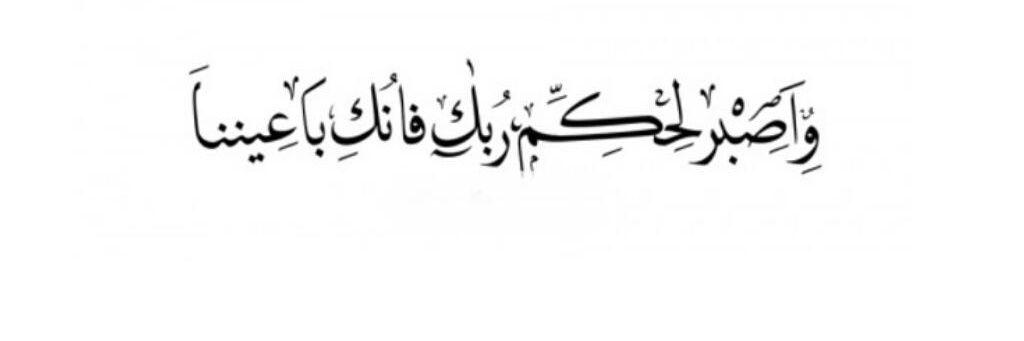 واصبر لحكم ربك فانك باعيننا